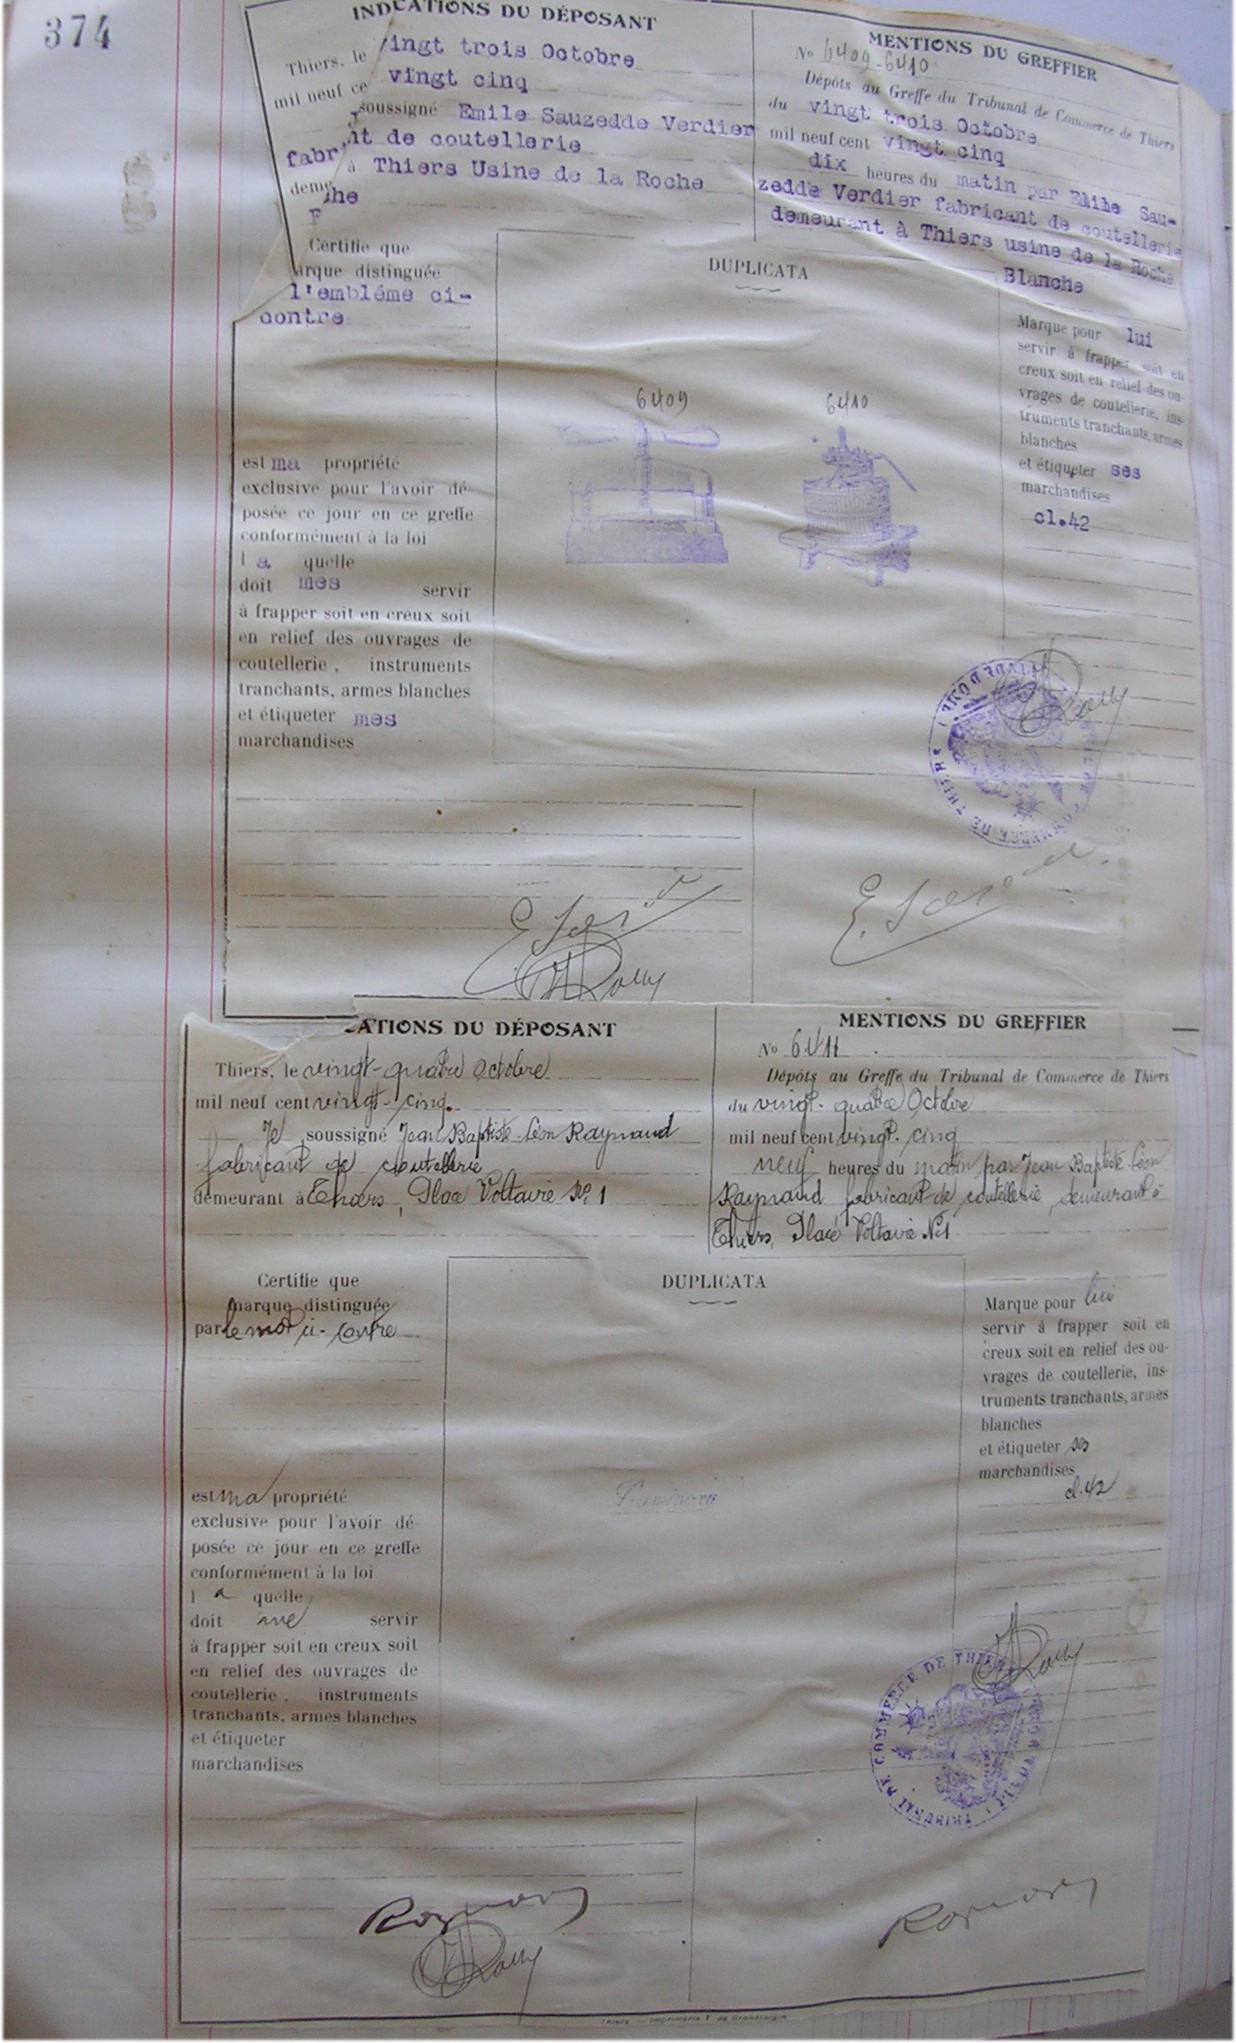 374
INDICATIONS DU DÉPOSANT
Thiers, le vingt trois Octobre
mil neuf ce vingt cinq
soussigné Emile Sauzedde Verdier
fabr nt de coutellerie
deme à Thiers Usine de la Roche
he
Certifie que
arque distinguée
l'embléme ci-
contre
est ma propriété
exclusive pour l'avoir dé-
posée ce jour en ce greffe
conformément à la loi
l a quelle
doit mes servir
à frapper soit en creux soit
en relief des ouvrages de
coutellerie, instruments
tranchants, armes blanches
et étiqueter mes
marchandises
DUPLICATA
6409
6410
MENTIONS DU GREFFIER
No 6409-6410
Dépôts au Greffe du Tribunal de Commerce de Thiers
du vingt trois Octobre
mil neuf cent vingt cinq
dix heures du matin par Elile Sau-
zedde Verdier fabricant de coutellerie
demeurant à Thiers usine de la Roche
Blanche
Marque pour lui
servir à frapper soit en
creux soit en relief des ou-
vrages de coutellerie, ins-
truments tranchants, armes
blanches
et étiqueter ses
marchandises
cl.42
CATIONS DU DÉPOSANT
Thiers, le vingt-quatre Octobre
mil neuf cent vingt-cinq.
Je soussigné Jean Baptiste Léon Raynaud
fabricant de coutellerie
demeurant à Thiers, Place Voltaire No 1
Certifie que
marque distinguée
par le mot ci-contre
est ma propriété
exclusive pour l'avoir dé-
posée ce jour en ce greffe
conformément à la loi
l a quelle
doit me servir
à frapper soit en creux soit
en relief des ouvrages de
coutellerie, instruments
tranchants, armes blanches
et étiqueter
marchandises
DUPLICATA
MENTIONS DU GREFFIER
No 6411
Dépôts au Greffe du Tribunal de Commerce de Thiers
du vingt-quatre Octobre
mil neuf cent vingt-cinq
neuf heures du matin par Jean Baptiste Léon
Raynaud fabricant de coutellerie, demeurant à
Thiers, Place Voltaire No 1
Marque pour lui
servir à frapper soit en
creux soit en relief des ou-
vrages de coutellerie, ins-
truments tranchants, armes
blanches
et étiqueter ses
marchandises
cl.42
TRIBUNAL DE COMMERCE DE THIERS